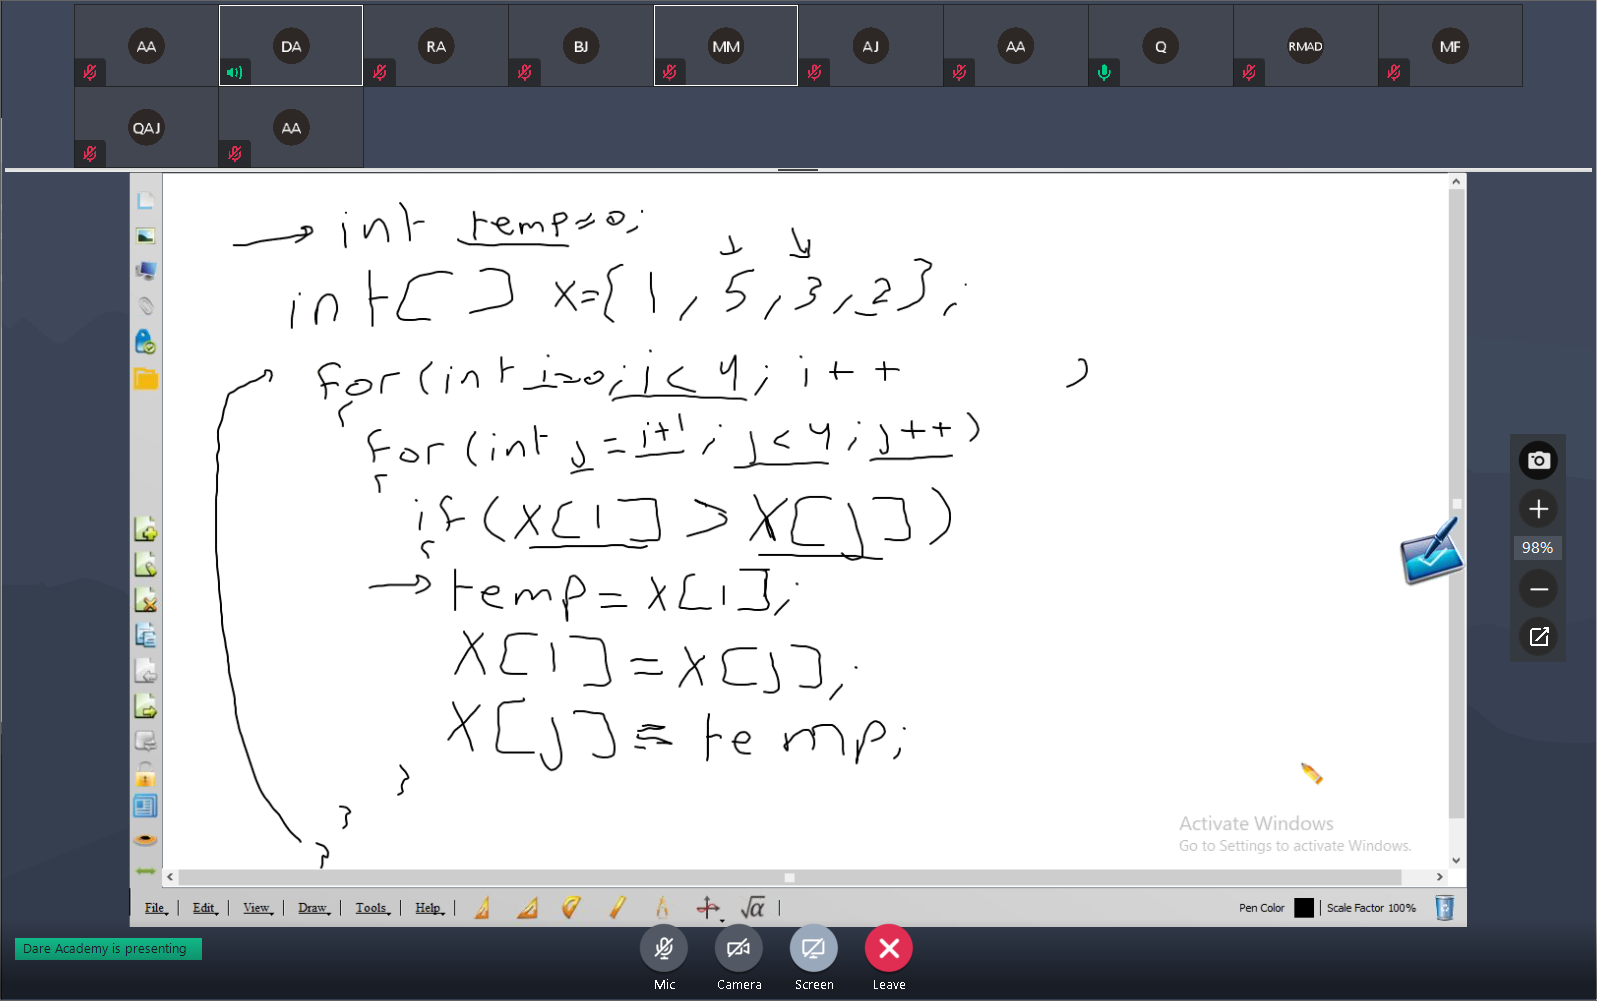 AA DA RA BJ MM AJ AA Q RMAD MF
QAJ AA
int temp=0;
int[] x={1,5,3,2};
for(int i=0;i<4;i++ )
{
for(int j=i+1;j<4;j++)
{
if(x[i]>x[j])
{
temp=x[i];
x[i]=x[j];
x[j]=temp;
}
}
}
98%
Activate Windows
Go to Settings to activate Windows.
File Edit View Draw Tools Help √α Pen Color Scale Factor 100%
Dare Academy is presenting
Mic Camera Screen Leave